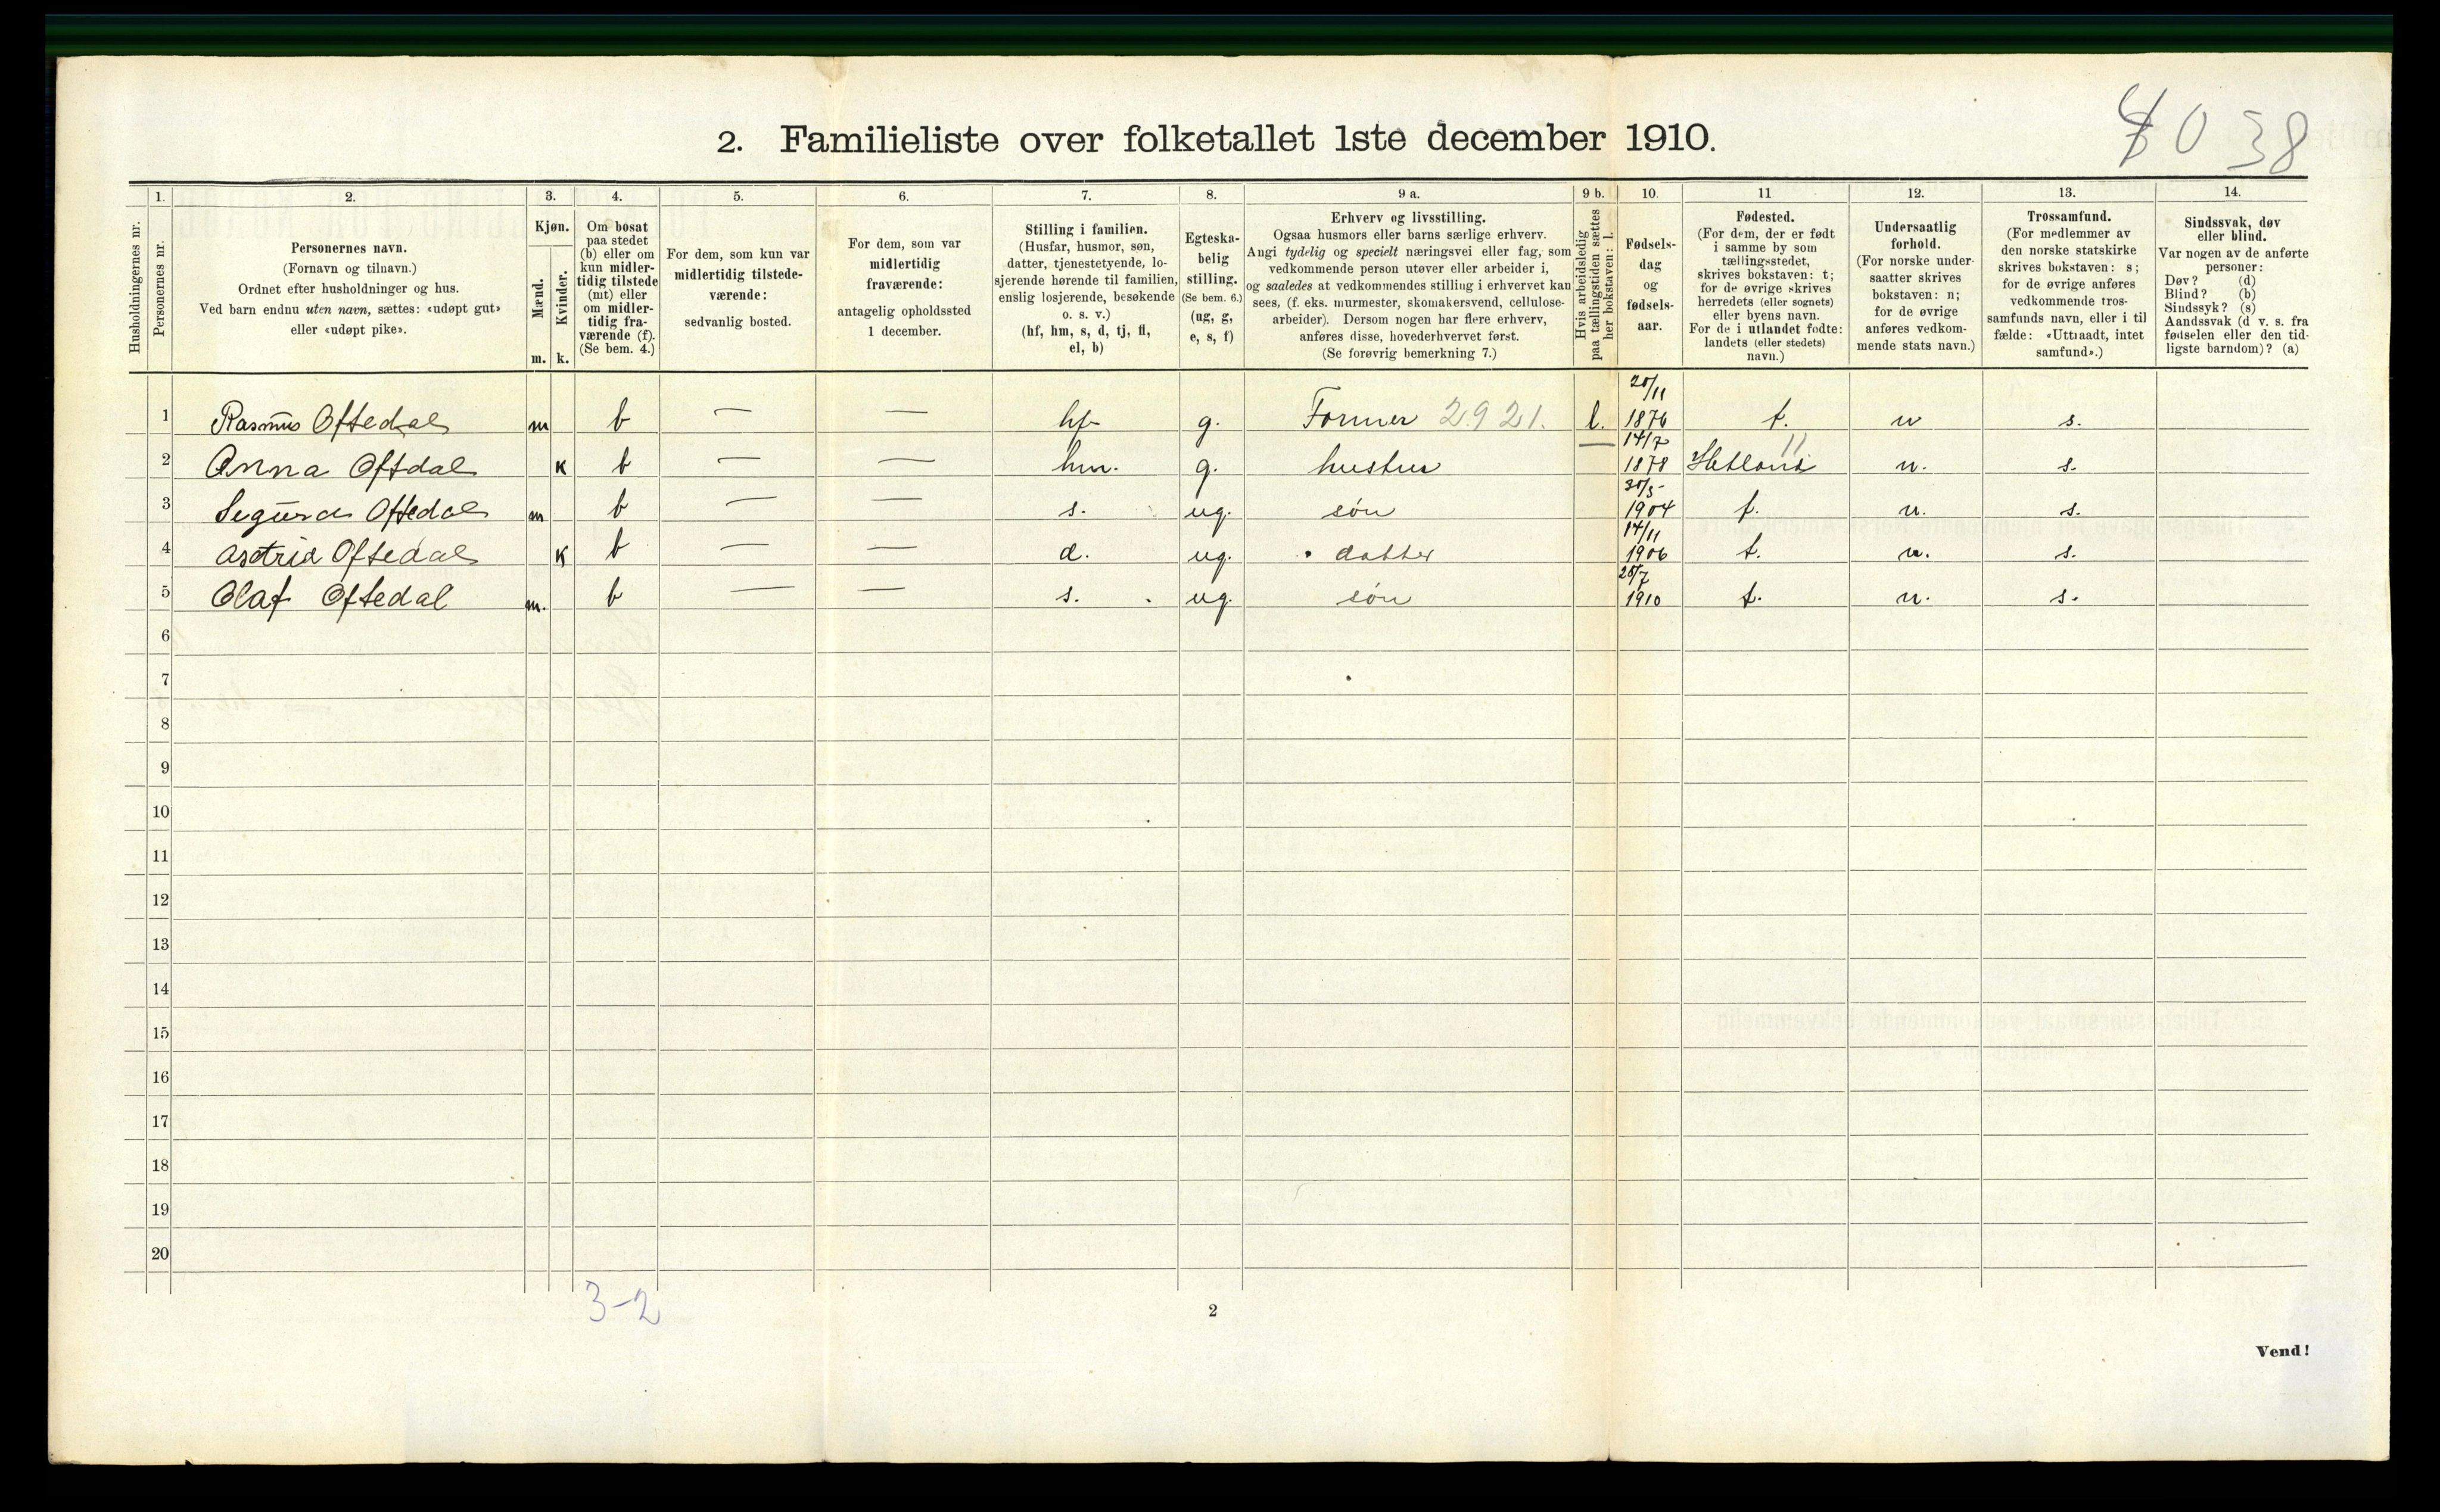 4038
2. Familieliste over folketallet 1ste december 1910.
1. 2. 3. 4. 5. 6. 7. 8. 9 a. 9 b. 10. 11 12. 13. 14.
Husholdningernes nr.
Personernes nr.
Personernes navn.
(Fornavn og tilnavn.)
Ordnet efter husholdninger og hus.
Ved barn endnu uten navn, sættes: «udøpt gut»
eller «udøpt pike».
Kjøn.
Mænd.
Kvinder.
m. k.
Om bosat
paa stedet
(b) eller om
kun midler-
tidig tilstede
(mt) eller
om midler-
tidig fra-
værende (f).
(Se bem. 4.)
For dem, som kun var
midlertidig tilstede-
værende:
sedvanlig bosted.
For dem, som var
midlertidig
fraværende:
antagelig opholdssted
1 december.
Stilling i familien.
(Husfar, husmor, søn,
datter, tjenestetyende, lo-
sjerende hørende til familien,
enslig losjerende, besøkende
o. s. v.)
(hf, hm, s, d, tj, fl,
el, b)
Egteska-
belig
stilling.
(Se bem. 6.)
(ug, g,
e, s, f)
Erhverv og livsstilling.
Ogsaa husmors eller barns særlige erhverv.
Angi tydelig og specielt næringsvei eller fag, som
vedkommende person utøver eller arbeider i,
og saaledes at vedkommendes stilling i erhvervet kan
sees, (f. eks. murmester, skomakersvend, cellulose-
arbeider). Dersom nogen har flere erhverv,
anføres disse, hovederhvervet først.
(Se forøvrig bemerkning 7.)
Hvis arbeidsledig
paa tællingstiden sættes
her bokstaven: l.
Fødsels-
dag
og
fødsels-
aar.
Fødested.
(For dem, der er født
i samme by som
tællingsstedet,
skrives bokstaven: t;
for de øvrige skrives
herredets (eller sognets)
eller byens navn.
For de i utlandet fødte:
landets (eller stedets)
navn.)
Undersaatlig
forhold.
(For norske under-
saatter skrives
bokstaven: n;
for de øvrige
anføres vedkom-
mende stats navn.)
Trossamfund.
(For medlemmer av
den norske statskirke
skrives bokstaven: s;
for de øvrige anføres
vedkommende tros-
samfunds navn, eller i til
fælde: «Uttraadt, intet
samfund».)
Sindssvak, døv
eller blind.
Var nogen av de anførte
personer:
Døv? (d)
Blind? (b)
Sindssyk? (s)
Aandssvak (d v. s. fra
fødselen eller den tid-
ligste barndom)? (a)
1 Rasmus Oftedal m b — — hf g. Former 2921. l. 20/11 1876 t. n s.
2 Anna Oftdal k b — — hm. g. hustru — 14/7 1878 Hetland 11 n. s.
3 Segurd Oftedal m b — — s. ug. søn 30/5 1904 t. n. s.
4 Astrid Oftedal k b — — d. ug. datter 14/11 1906 t. n. s.
5 Olaf Oftedal m. b — — s. ug. søn 28/7 1910 t. n. s.
6
7
8
9
10
11
12
13
14
15
16
17
18
19
20
3-2
2
Vend!